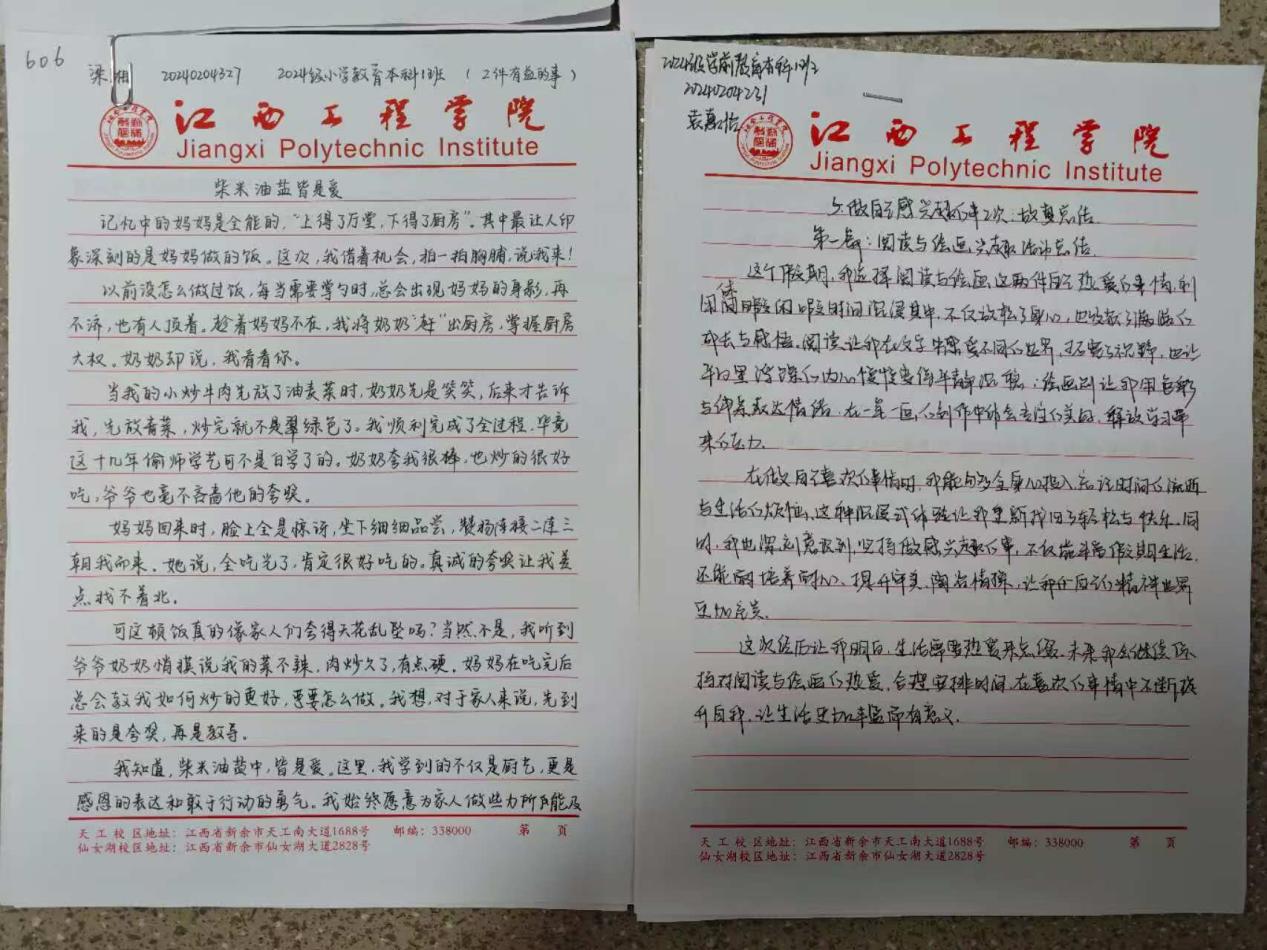 606
梁 20240204327 2024级小学教育本科1班 （2件有益的事）
江西工程学院
Jiangxi Polytechnic Institute
柴米油盐皆是爱
记忆中的妈妈是全能的，“上得了厅堂，下得了厨房”。其中最让人印
象深刻的是妈妈做的饭。这次，我借着机会，拍一拍胸脯，说：我来！
以前没怎么做过饭，每当需要掌勺时，总会出现妈妈的身影，再
不济，也有人顶着。趁着妈妈不在，我将奶奶“赶”出厨房，掌握厨房
大权。奶奶却说，我看着你。
当我的小炒牛肉先放了油麦菜时，奶奶先是笑笑，后来才告诉
我，先放青菜，炒完就不是翠绿色了。我顺利完成了全过程，毕竟
这十几年偷师学艺可不是白学了的。奶奶夸我很棒，也炒的很好
吃，爷爷也毫不吝啬他的夸奖。
妈妈回来时，脸上全是惊讶，坐下细细品尝，赞扬连接二连三
朝我而来。她说，全吃光了，肯定很好吃的。真诚的夸奖让我差
点找不着北。
可这顿饭真的像家人们夸得天花乱坠吗？当然不是，我听到
爷爷奶奶悄摸说我的菜不辣，肉炒久了，有点硬。妈妈在吃完后
总会教我如何炒的更好，要怎么做。我想，对于家人来说，先到
来的是夸奖，再是教导。
我知道，柴米油盐中，皆是爱。这里，我学到的不仅是厨艺，更是
感恩的表达和敢于行动的勇气。我始终愿意为家人做些力所能及
天工校区地址：江西省新余市天工南大道1688号 邮编：338000 第 页
仙女湖校区地址：江西省新余市仙女湖大道2828号
2024级学前教育本科1班
20240204231
袁
江西工程学院
Jiangxi Polytechnic Institute
做自己感兴趣的事2次
第一篇：阅读与绘画兴趣活动总结
这个假期，我选择阅读与绘画这两件自己热爱的事情，利
用闲暇时间沉浸其中，不仅放松了身心，也收获了满满的
成长与感悟。阅读让我在文字中感受不同的世界，拓宽了视野，也让
平日里浮躁的内心慢慢变得平静沉稳；绘画则让我用色彩
与线条表达情绪，在一笔一画的创作中体会专注的美好，释放学习带
来的压力。
在做自己喜欢的事情时，我能够全身心投入，忘记时间的流逝
与生活的烦恼，这种沉浸式体验让我重新找回了轻松与快乐。同
时，我也深刻意识到，坚持做感兴趣的事，不仅能丰富假期生活，
还能培养耐心、提升审美、陶冶情操，让我们自己的精神世界
更加充实。
这次经历让我明白，生活需要热爱来点缀。未来我会继续保
持对阅读与绘画的热爱，合理安排时间，在喜欢的事情中不断提
升自我，让生活更加丰富而有意义。
天工校区地址：江西省新余市天工南大道1688号 邮编：338000 第 页
仙女湖校区地址：江西省新余市仙女湖大道2828号